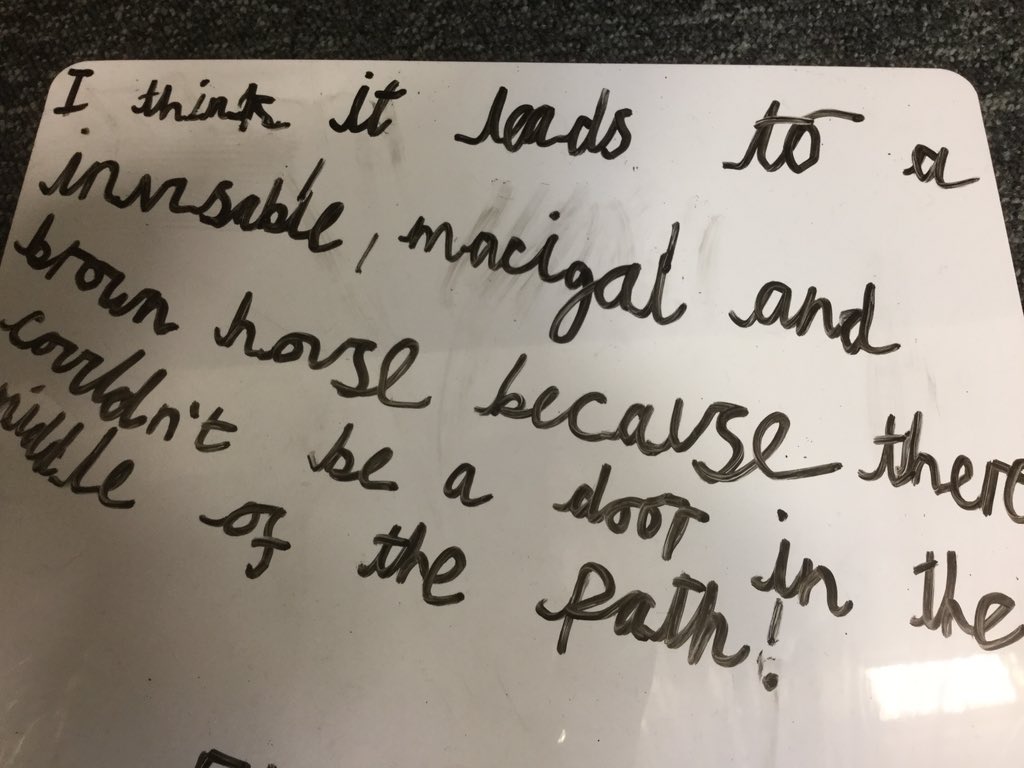 I think it leads to a
invisable, macigal and
brown house because there
couldn't be a door in the
middle of the path!